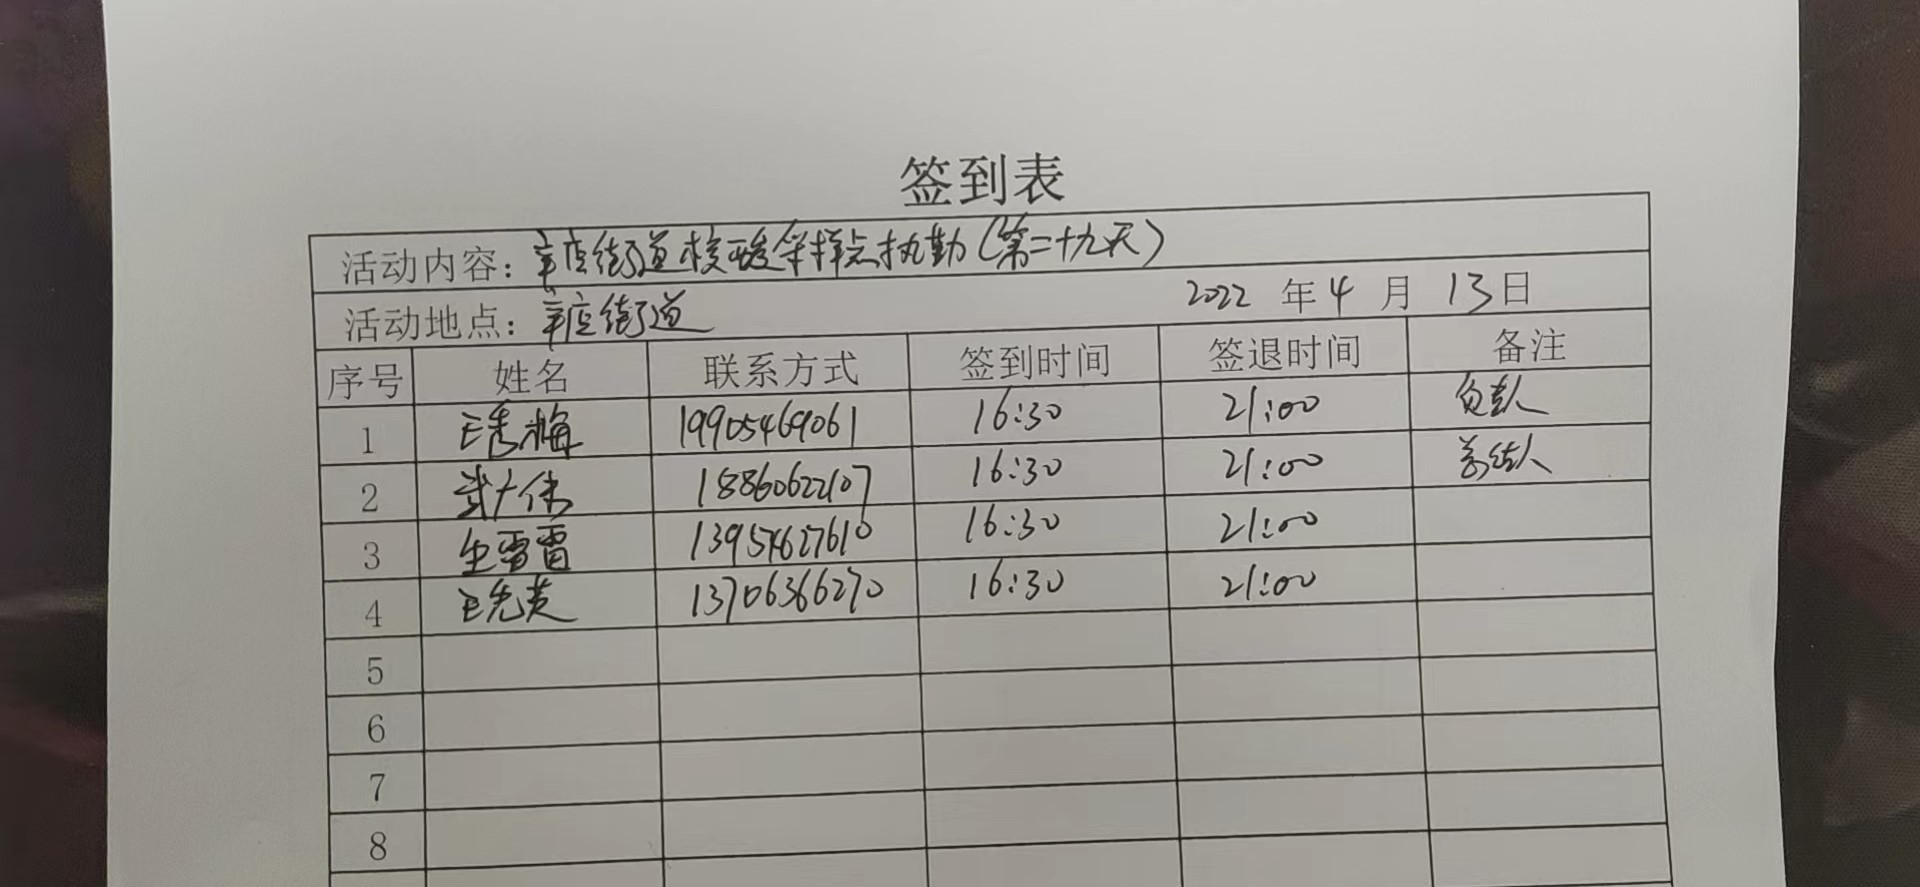 签到表
活动内容：辛店街道核酸采样点执勤（第二十九天）
活动地点：辛店街道 2022 年 4 月 13 日
序号 姓名 联系方式 签到时间 签退时间 备注
1 王秀梅 19905469061 16:30 21:00 负责人
2 武大伟 18860622107 16:30 21:00
3 生雷雷 13954627610 16:30 21:00
4 王先芝 13706366270 16:30 21:00
5
6
7
8